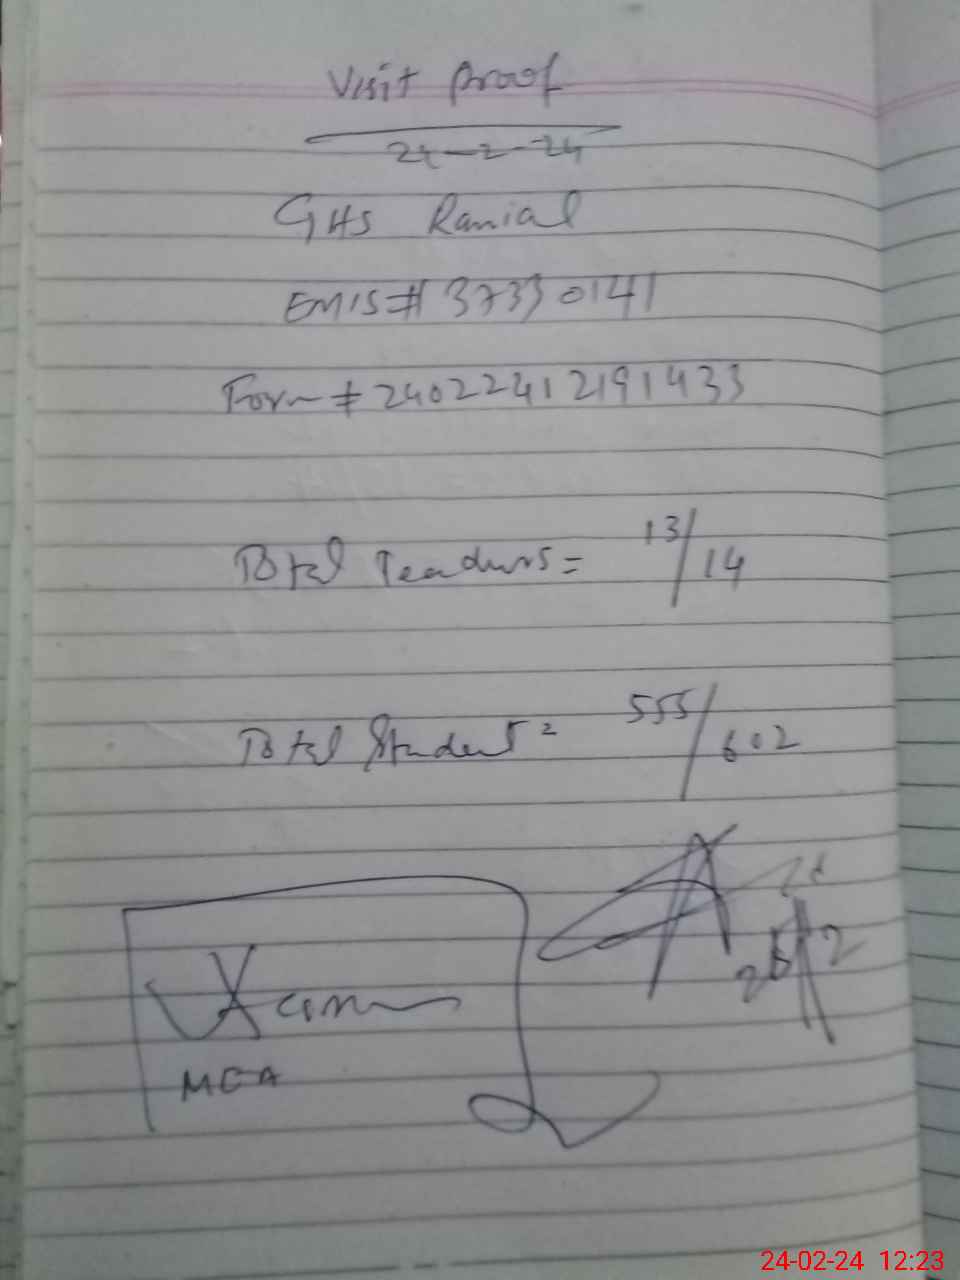 Visit Proof
24-2-24
GHS Ranial
EMIS# 37330141
Form # 24022412191433
Total Teachers = 13/14
Total Students = 555/602
MEA
24-02-24 12:23